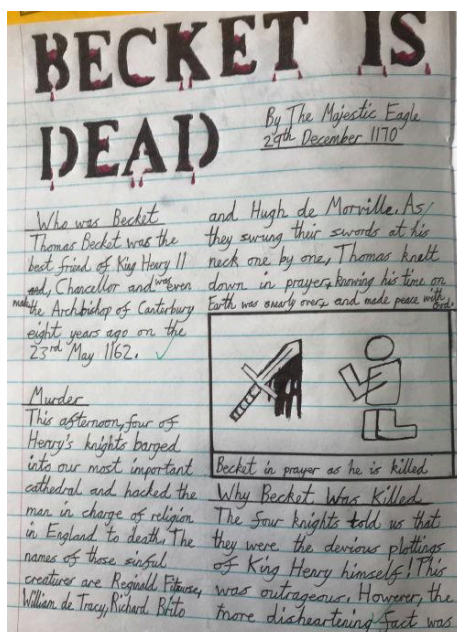 BECKET IS
DEAD
By The Majestic Eagle
29th December 1170
Who was Becket
Thomas Becket was the
best friend of King Henry II
and, Chancellor and was even
made the Archbishop of Canterbury
eight years ago on the
23rd May 1162.
Murder
This afternoon, four of
Henry's knights barged
into our most important
cathedral and hacked the
man in charge of religion
in England to death. The
names of those sinful
creatures are Reginald Fitzurse,
William de Tracy, Richard Brito
and Hugh de Morville. As
they swung their swords at his
neck one by one, Thomas knelt
down in prayer, knowing his time on
Earth was nearly over, and made peace with God.
Becket in prayer as he is killed
Why Becket Was Killed
The four knights told us that
they were the devious plottings
of King Henry himself! This
was outrageous. However, the
more disheartening fact was